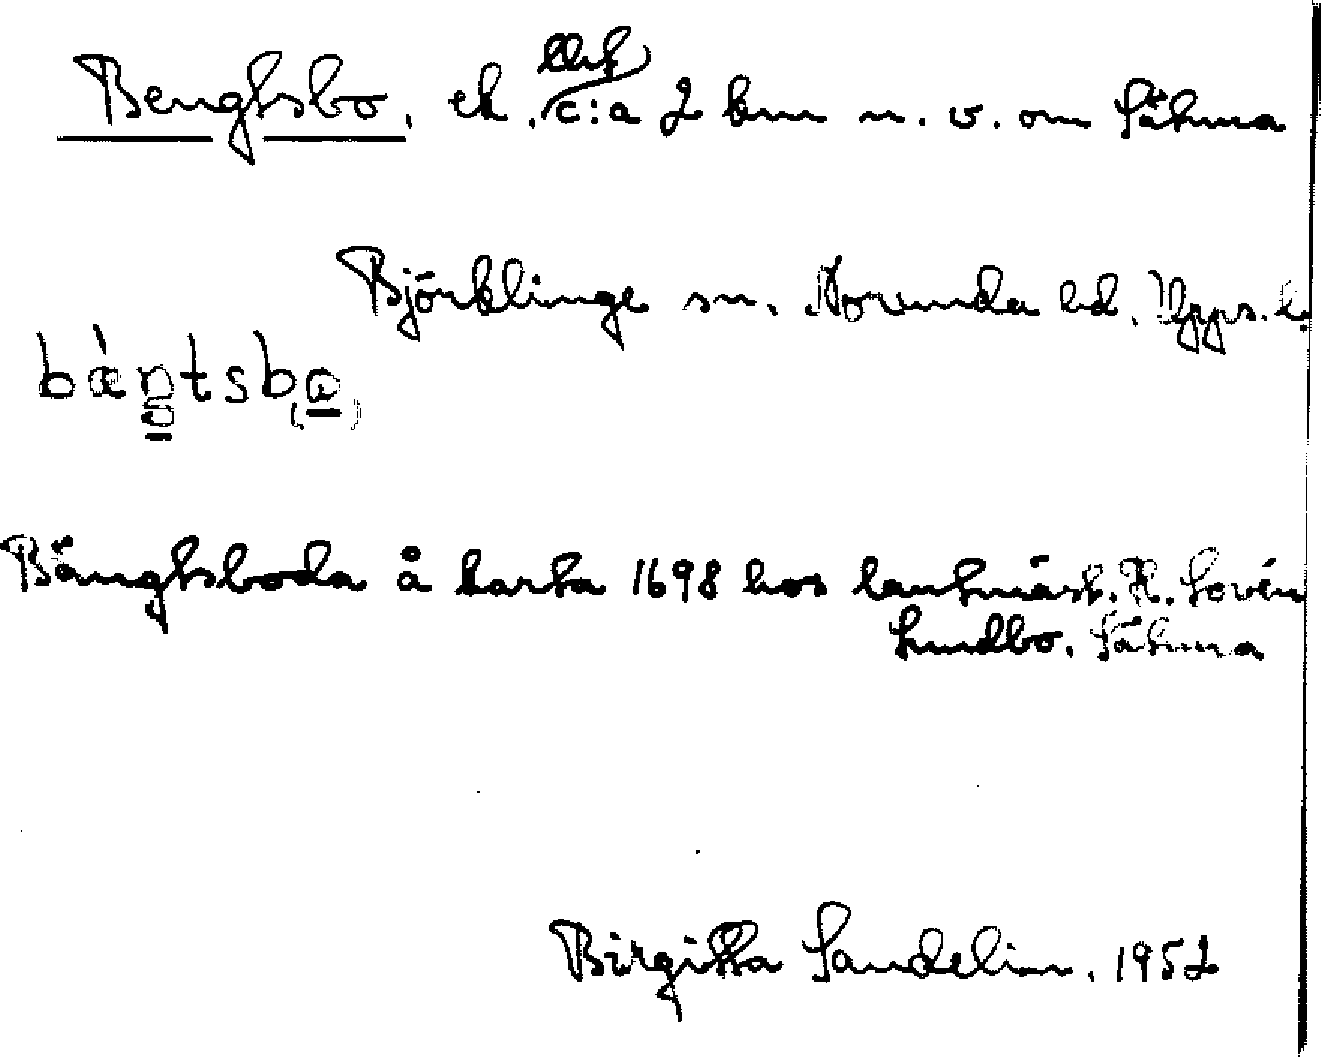 Bengtsbo, ek. c:a 2 km n. v. om Sätuna
Björklinge sn. Norunda hd. Upps. l.
bàŋtsbo
Bängtsboda å karta 1698 hos lantmäst. H. Lovén
Lundbo. Sätuna
Birgitta Sandelin. 1952